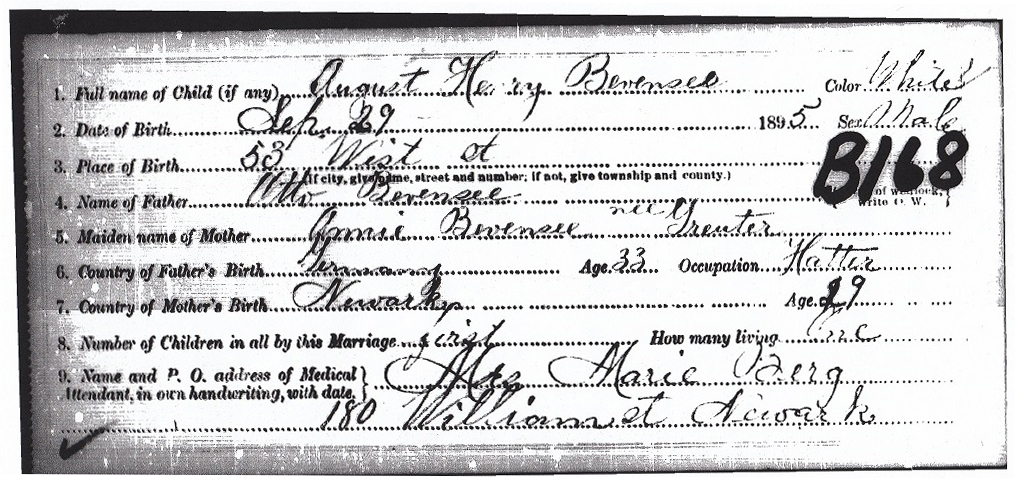 1. Full name of Child (if any) August Henry Bevensee Color White
2. Date of Birth Sep. 29 1895 Sex Male
3. Place of Birth 53 Wist st
(If city, give name, street and number; if not, give township and county.)
B168
of wedlock,
write O. W.
4. Name of Father Otto Bevensee
5. Maiden name of Mother Annie Bevensee nee Greuter
6. Country of Father's Birth Germany Age 33 Occupation Hatter
7. Country of Mother's Birth Newark Age 29
8. Number of Children in all by this Marriage first How many living One
9. Name and P. O. address of Medical Attendant, in own handwriting, with date. Mrs Marie Berg
180 William st Newark